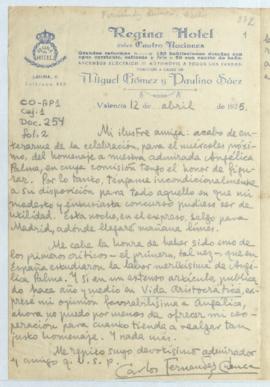 Regina Hotel
antes Cuatro Naciones
Grandes reformas
ASCENSOR ELÉCTRICO AUTOMÓVIL A TODOS LOS TRENES
Miguel Gómez y Paulino Sáez
LAURIA, 6
TELÉFONO
CO-AP1
Caj. 2
Doc. 254
fol. 2
1
Valencia 12 de abril de 1925.
Mi ilustre amiga: acabo de en-
terarme de la celebración, para el miércoles próxi-
mo, del homenaje a nuestra admirada Angélica
Palma, en cuya comisión tengo el honor de figu-
rar. Por lo tanto, téngame incondicionalmente
a su disposición para todo aquello en que mi
modesto y entusiasta concurso pudiese ser de
utilidad. Esta noche, en el expreso, salgo para
Madrid, adonde llegaré mañana lunes.
Me cabe la honra de haber sido uno de
los primeros críticos - el primero, tal vez - que en
España estudiaron la labor meritísima de Angéli-
ca Palma. Y si en un extenso artículo publica-
do hace año y medio en Vida Aristocrática, ex-
presé mi opinión favorabilísima a Angélica,
ahora no puedo por menos de ofrecer mi coo-
peración para cuanto tienda a realzar tan
justo homenaje. Y nada más.
Me repito suyo devotísimo admirador
y amigo q. l. s. p.
Carlos Fernández Cuenca